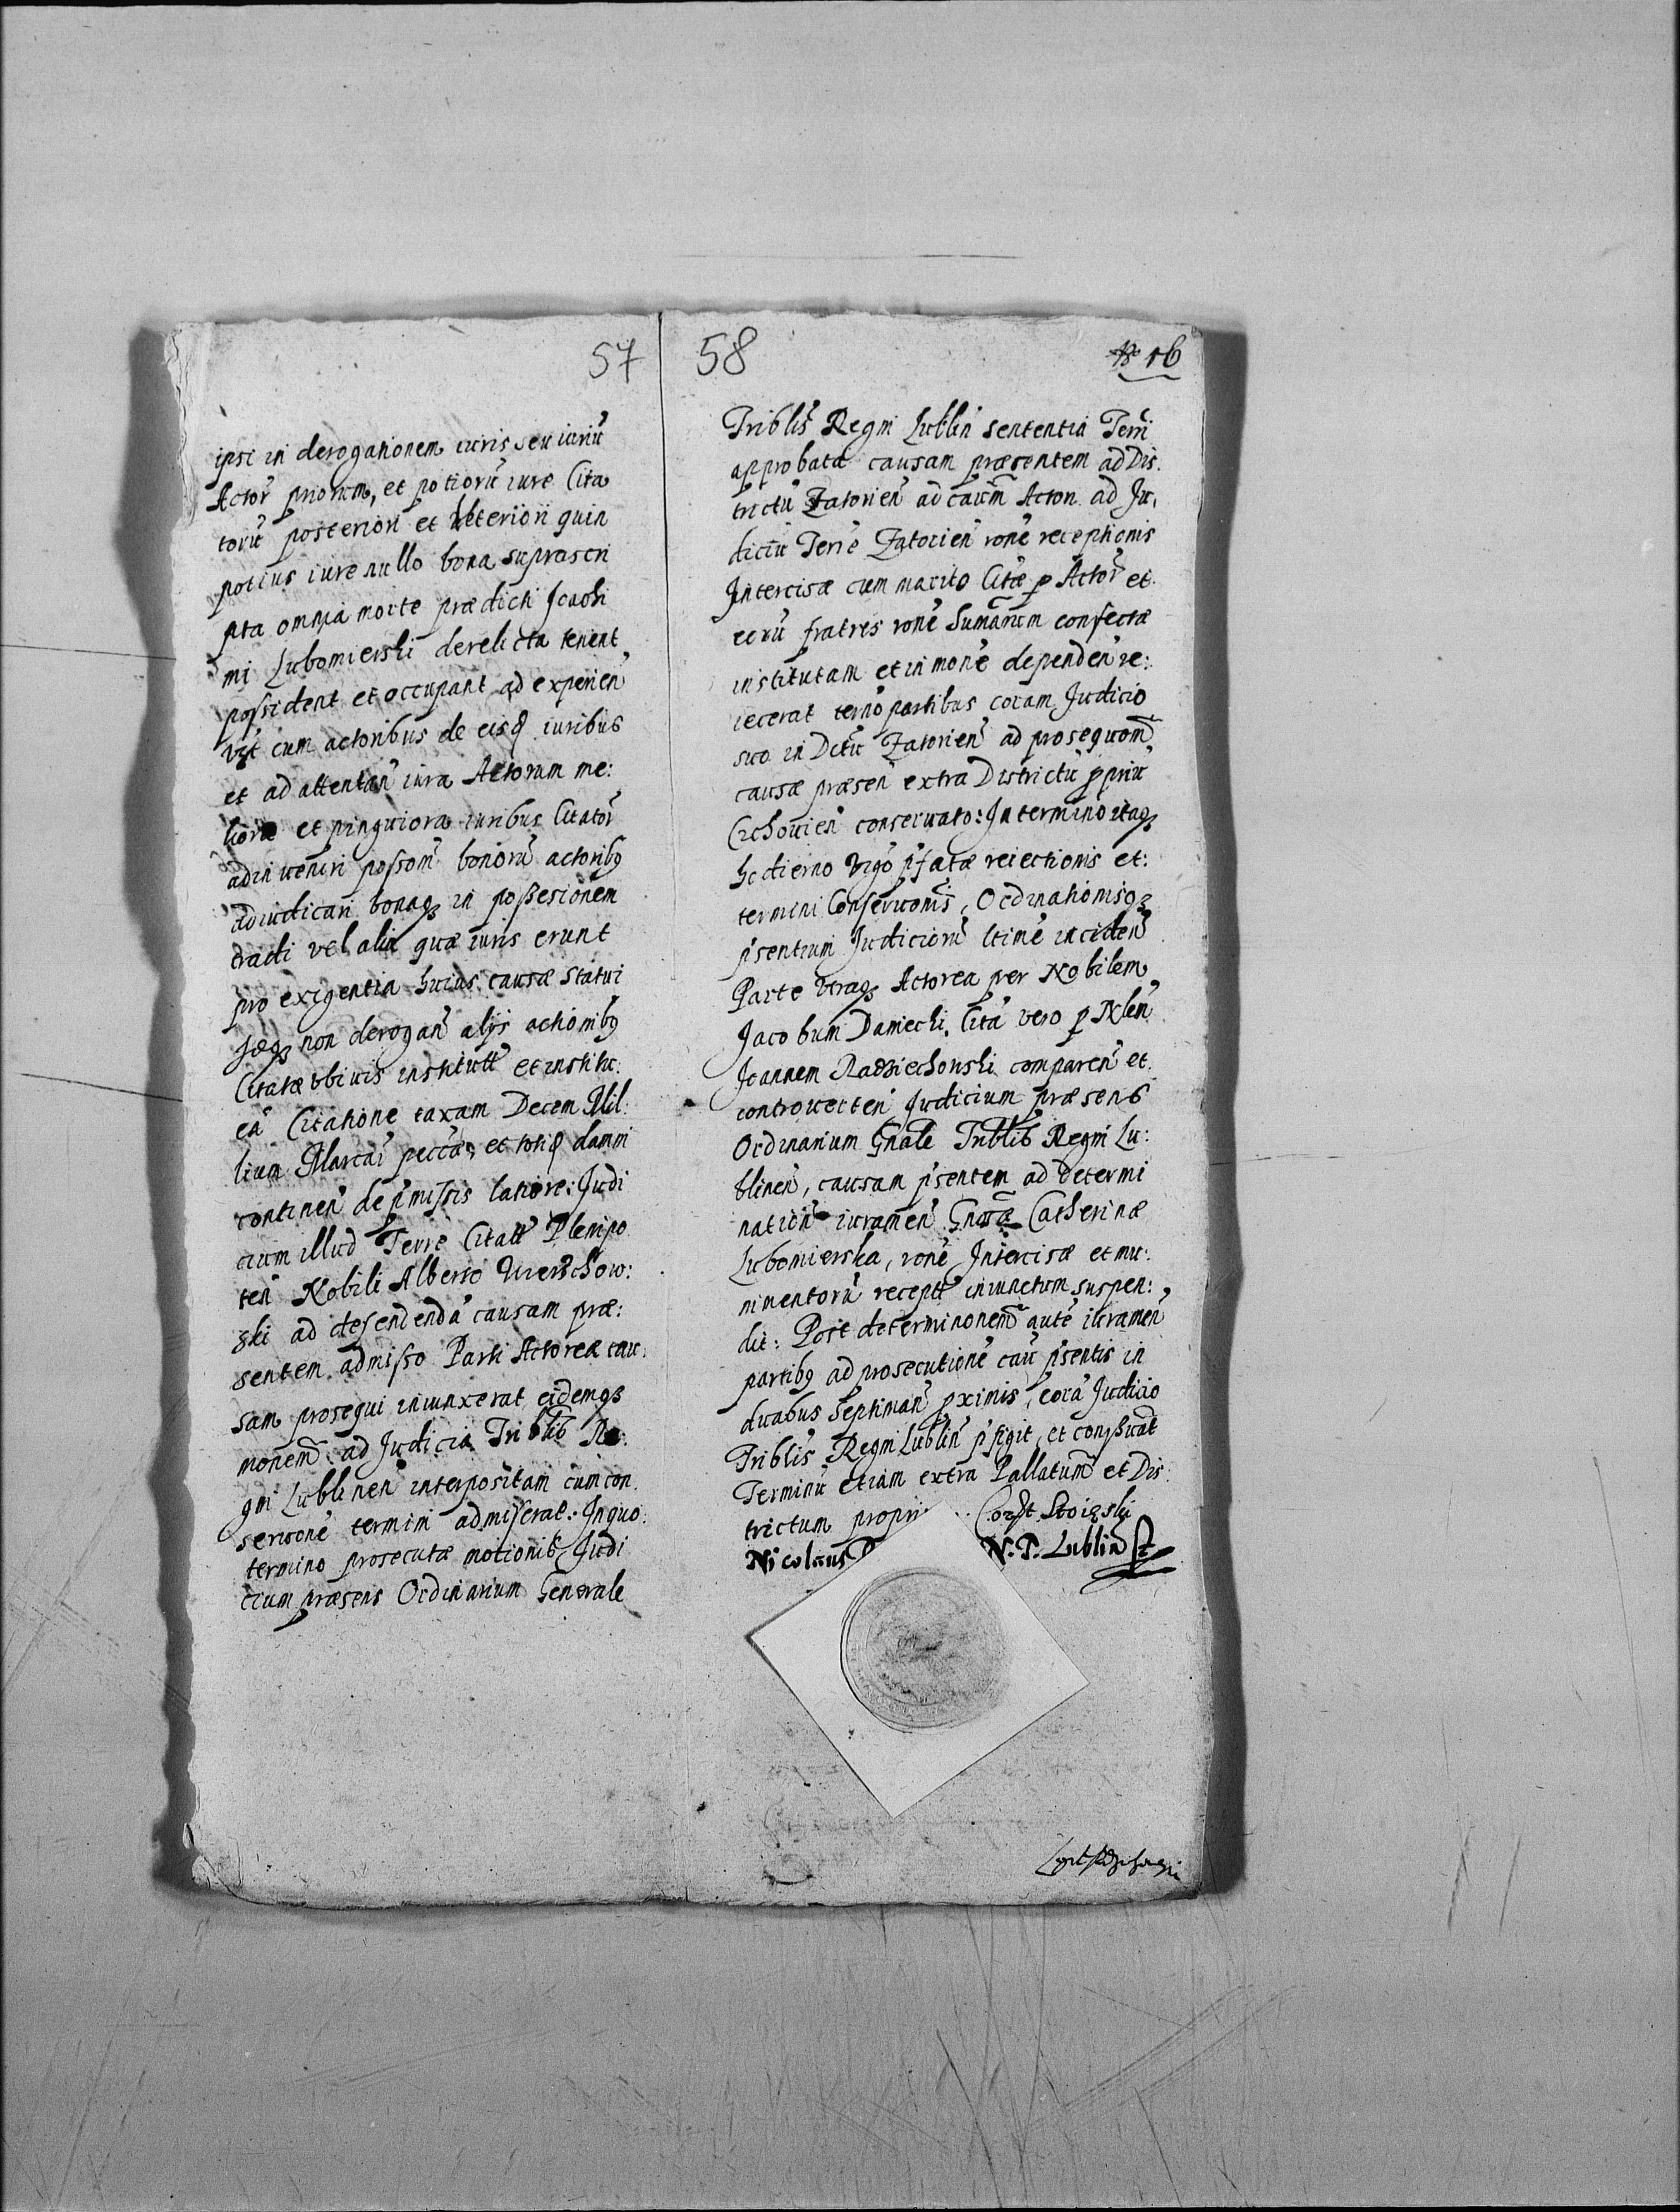 57
ipsi in derogationem iuris seu iuriū
Actor̄ priorum, et potiorū iure Cita
torū posteriori et veteriori quin
potius iure nullo bona suprascri
pta omnia morte prædicti Joachi
mi Lubomierski derelicta tenent,
possident et occupant ad experien̄
cum actoribus de eisd iuribus
et ad attentan̄ iura Actorum me:
liora et pinguiora iuribus Citator̄
adinveniri possom̄ bonorū actoribꝫ
adiudicari bonaqꝫ in possesionem
tradi vel alia quæ iuris erunt
pro exigentia huius causæ statui
non derogan̄ alijs actionibꝫ
Citatæ obivis institutt et institu:
eā Citatione taxam Decem Mil:
lium Marcar̄ peccā, et totid damni
continen̄ de p̄missis latiore: Judi
cium illud Terre Citatt Plenipo
ten̄ Nobili Alberto Wierzchow:
ski ad defendendā causam præ:
sentem admisso Parti Actoreæ cau:
sam prosequi iniunxerat eidemqꝫ
monem̄ ad Judicia Triblis Re:
gni Lublinen̄ interpositam cum con:
servone termini admiserat: In quo:
termino prosecutæ motionis Judi
cium præsens Ordinarium Generale
58
16
Triblis Regni Lublin̄ sententia Terri
approbata causam præsentem ad Dis:
trictū Zatorien̄ ad caūm Acton ad Ju:
diciū Terre Zatorien̄ rone receptionis
Intercisæ cum marito Citæ p Actor̄ et
eorū fratres rone Sumarum confectæ
institutam et in mone dependen̄ re:
iecerat termo partibus coram Judicio
suo in Dctū Zatorien̄ ad prosequom̄
causæ præsen̄ extra Districtū ppriū
Czchovien̄ conservato: In termino itaqꝫ
hodierno vigo p̄fatæ reiectionis et:
termini Conservonis, Ordinationisqꝫ
p̄sentium Judiciorū ltime inciden̄
Parte utraqꝫ Actorea per Nobilem
Jacobum Daniecki, Cita vero p Nlen̄
Joannem Radziechowski comparen̄ et
controverten̄ Judicium præsens
Ordinarium Gnale Triblis Regni Lu:
blinen̄, causam p̄sentem ad determi
nation iuramen̄ Gnosæ Catherinæ
Lubomierska, rone Intercisæ et mu:
nimentorū receptt iniunctum suspen:
dit: Post determinonem̄ autē iuramen̄
partibꝫ ad prosecutione caū p̄sentis in
duabus Septiman̄ pximis, corā Judicio
Triblis Regni Lublin̄ p̄figit, et conservat
Terminū etiam extra Pallatum̄ et Dis:
trictum propri
Nicolaus
N. P. Lublin